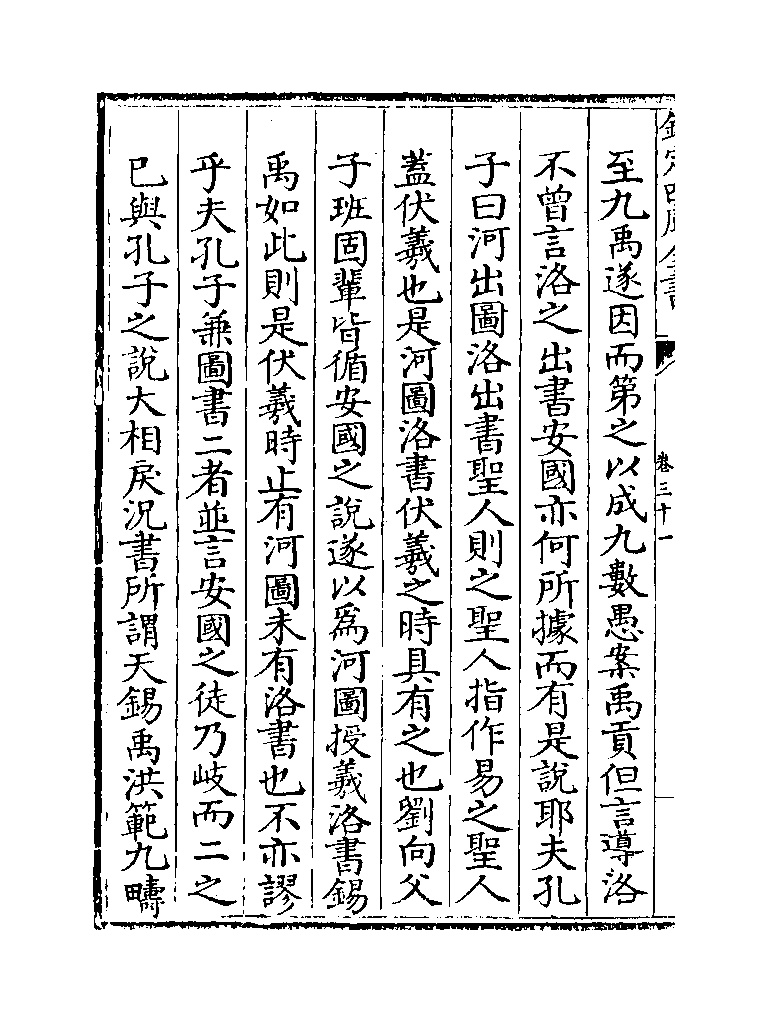 欽定四庫全書
卷三十一
至九禹遂因而第之以成九數愚案禹貢但言導洛
不曾言洛之出書安國亦何所據而有是說耶夫孔
子曰河出圖洛出書聖人則之聖人指作易之聖人
蓋伏羲也是河圖洛書伏羲之時具有之也劉向父
子班固輩皆循安國之說遂以為河圖授羲洛書錫
禹如此則是伏羲時止有河圖未有洛書也不亦謬
乎夫孔子兼圖書二者並言安國之徒乃岐而二之
已與孔子之說大相戾況書所謂天錫禹洪範九疇